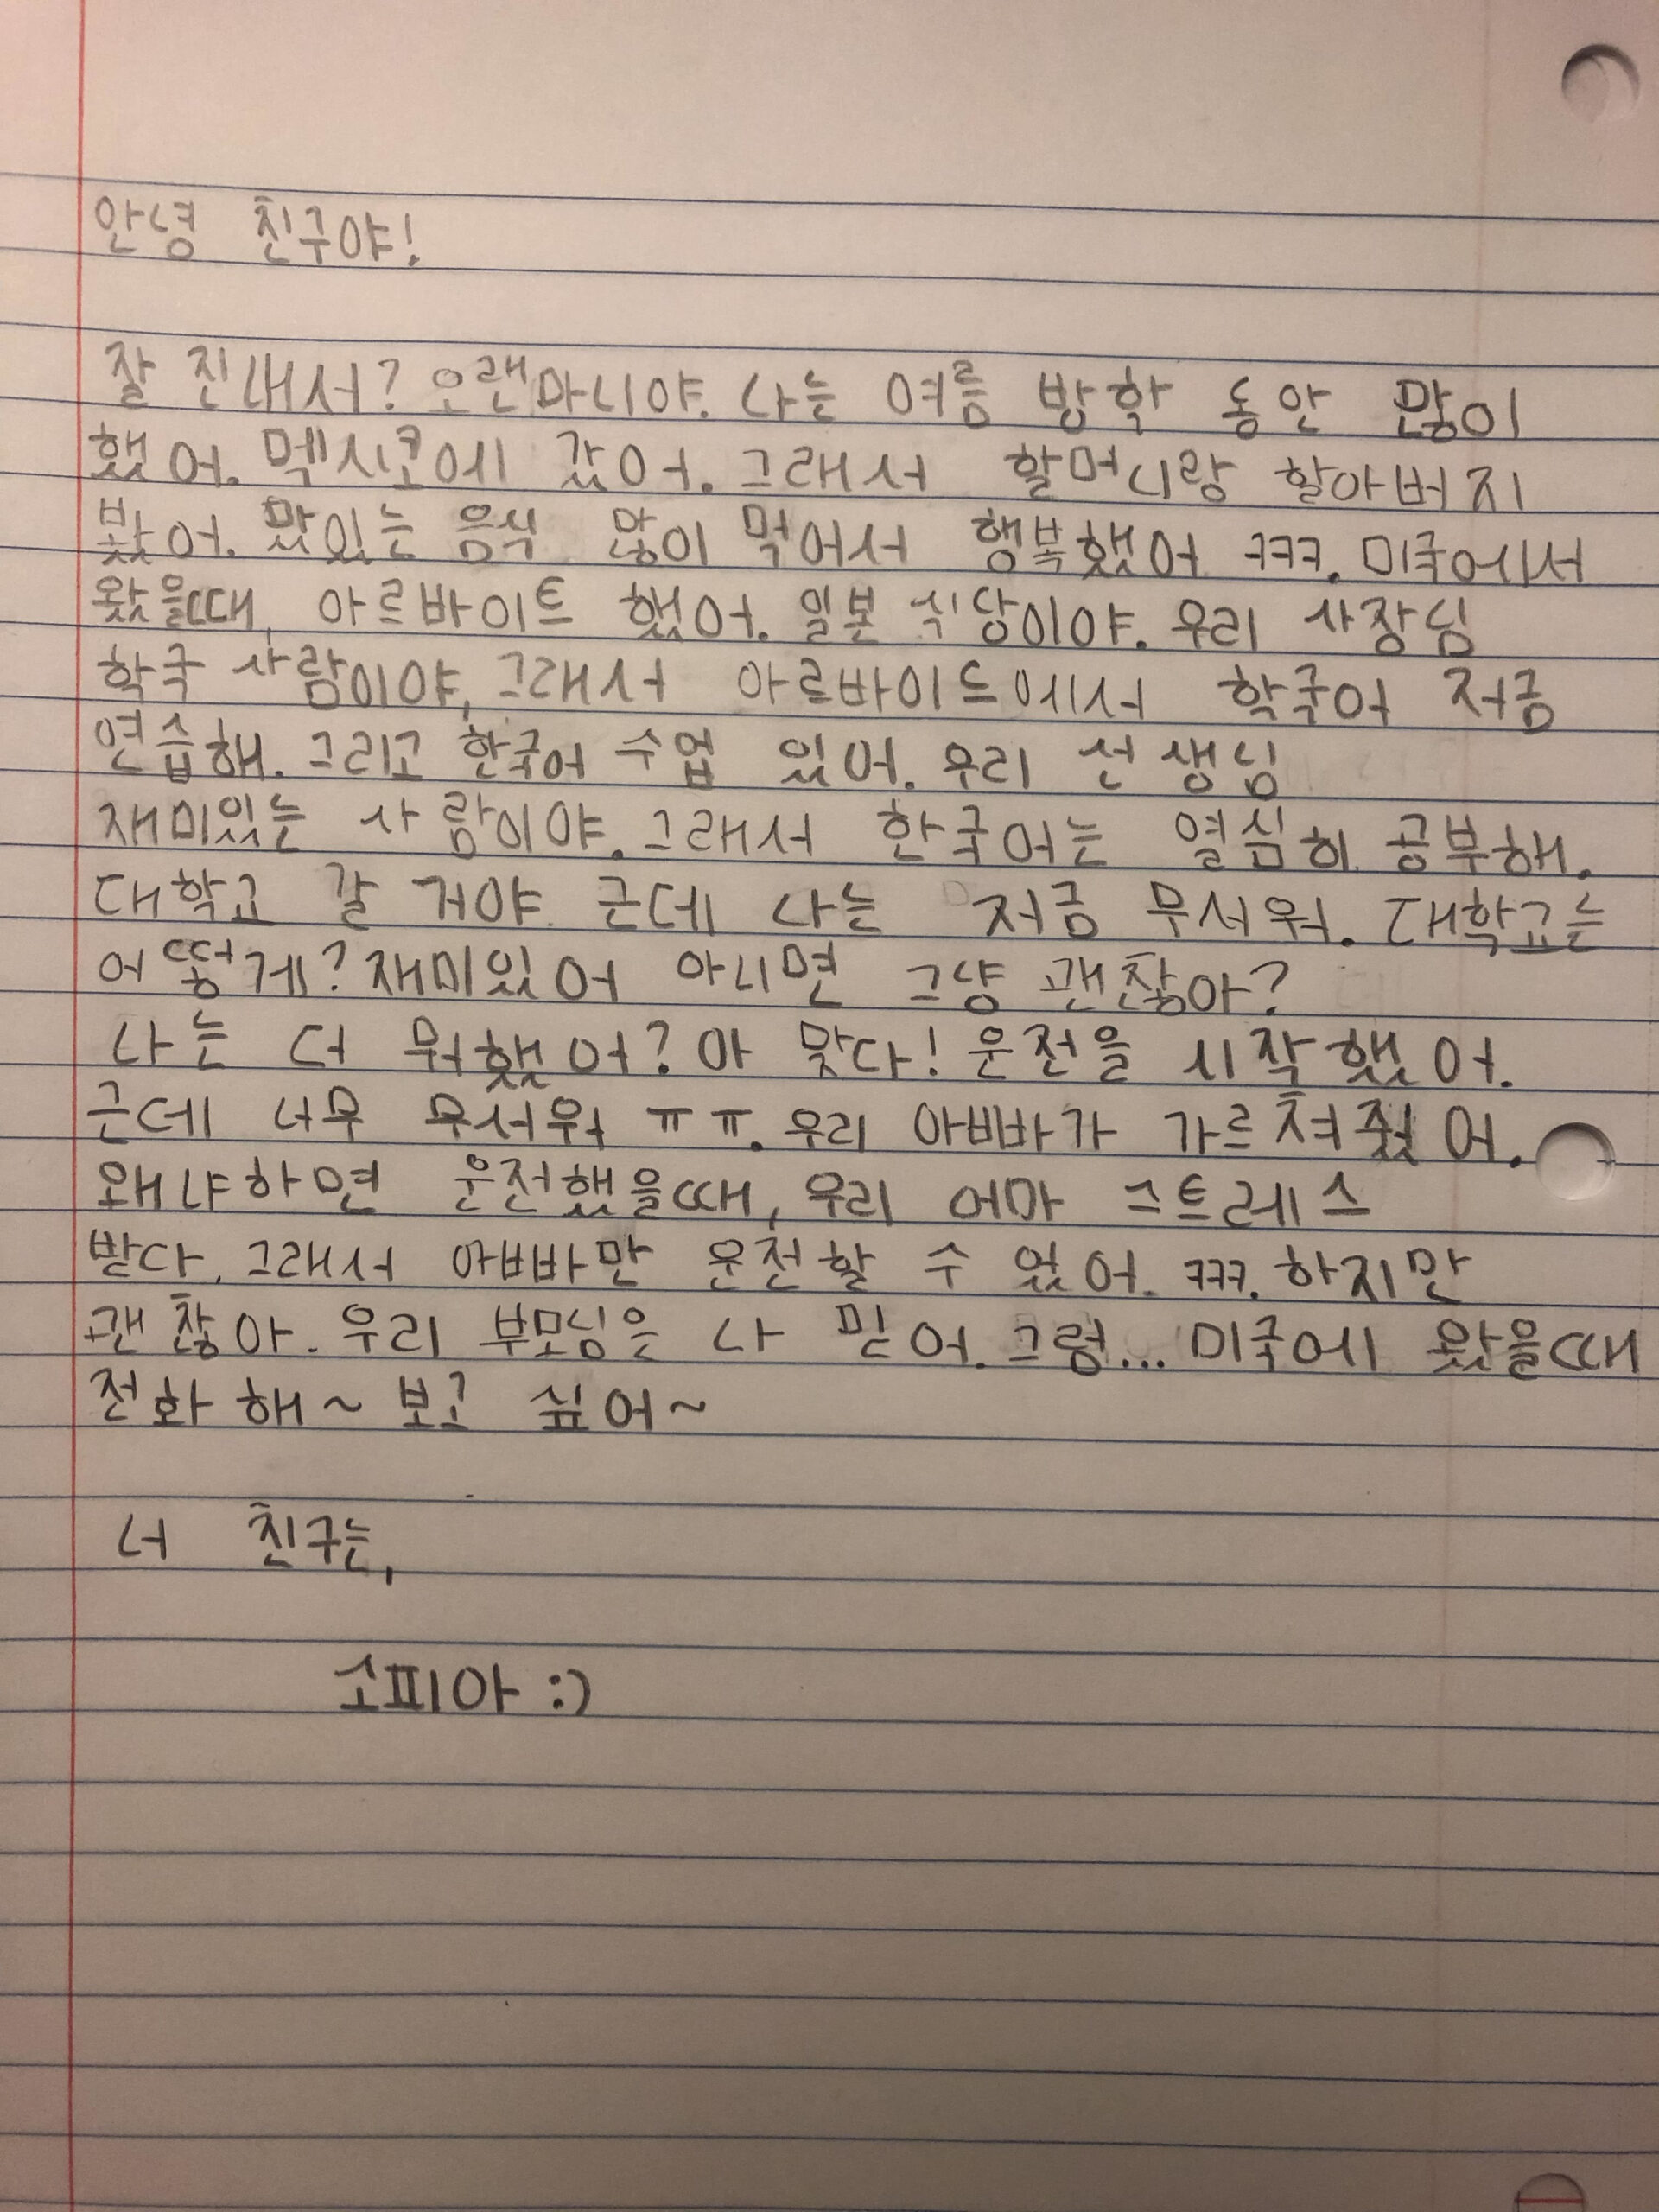 안녕 친구야!
잘 진내서? 오랜마니야. 나는 여름 방학 동안 많이
했어. 멕시코에 갔어. 그래서 할머니랑 할아버지
봤어. 맜있는 음식 많이 먹어서 행복했어 ㅋㅋㅋ. 미국에서
왔을때, 아르바이트 했어. 일본 식당이야. 우리 사장님
학국 사람이야, 그래서 아르바이드에서 학국어 저금
연습해. 그리고 한국어 수업 있어. 우리 선생님
재미있는 사람이야. 그래서 한국어는 열심히 공부해.
대학교 갈 거야. 근데 나는 저금 무서워. 대학교는
어떻게? 재미있어 아니면 그냥 괜찮아?
나는 더 뭐했어? 아 맞다! 운전을 시작했어.
근데 너무 무서워 ㅠㅠ. 우리 아빠가 가르쳐줬어.
왜냐하면 운전했을때, 우리 어마 스트레스
받다. 그래서 아빠만 운전할 수 있어. ㅋㅋㅋ. 하지만
괜찮아. 우리 부모님은 나 믿어. 그렁... 미국에 왔을때
전화해~ 보고 싶어~
너 친구는,
소피아 :)